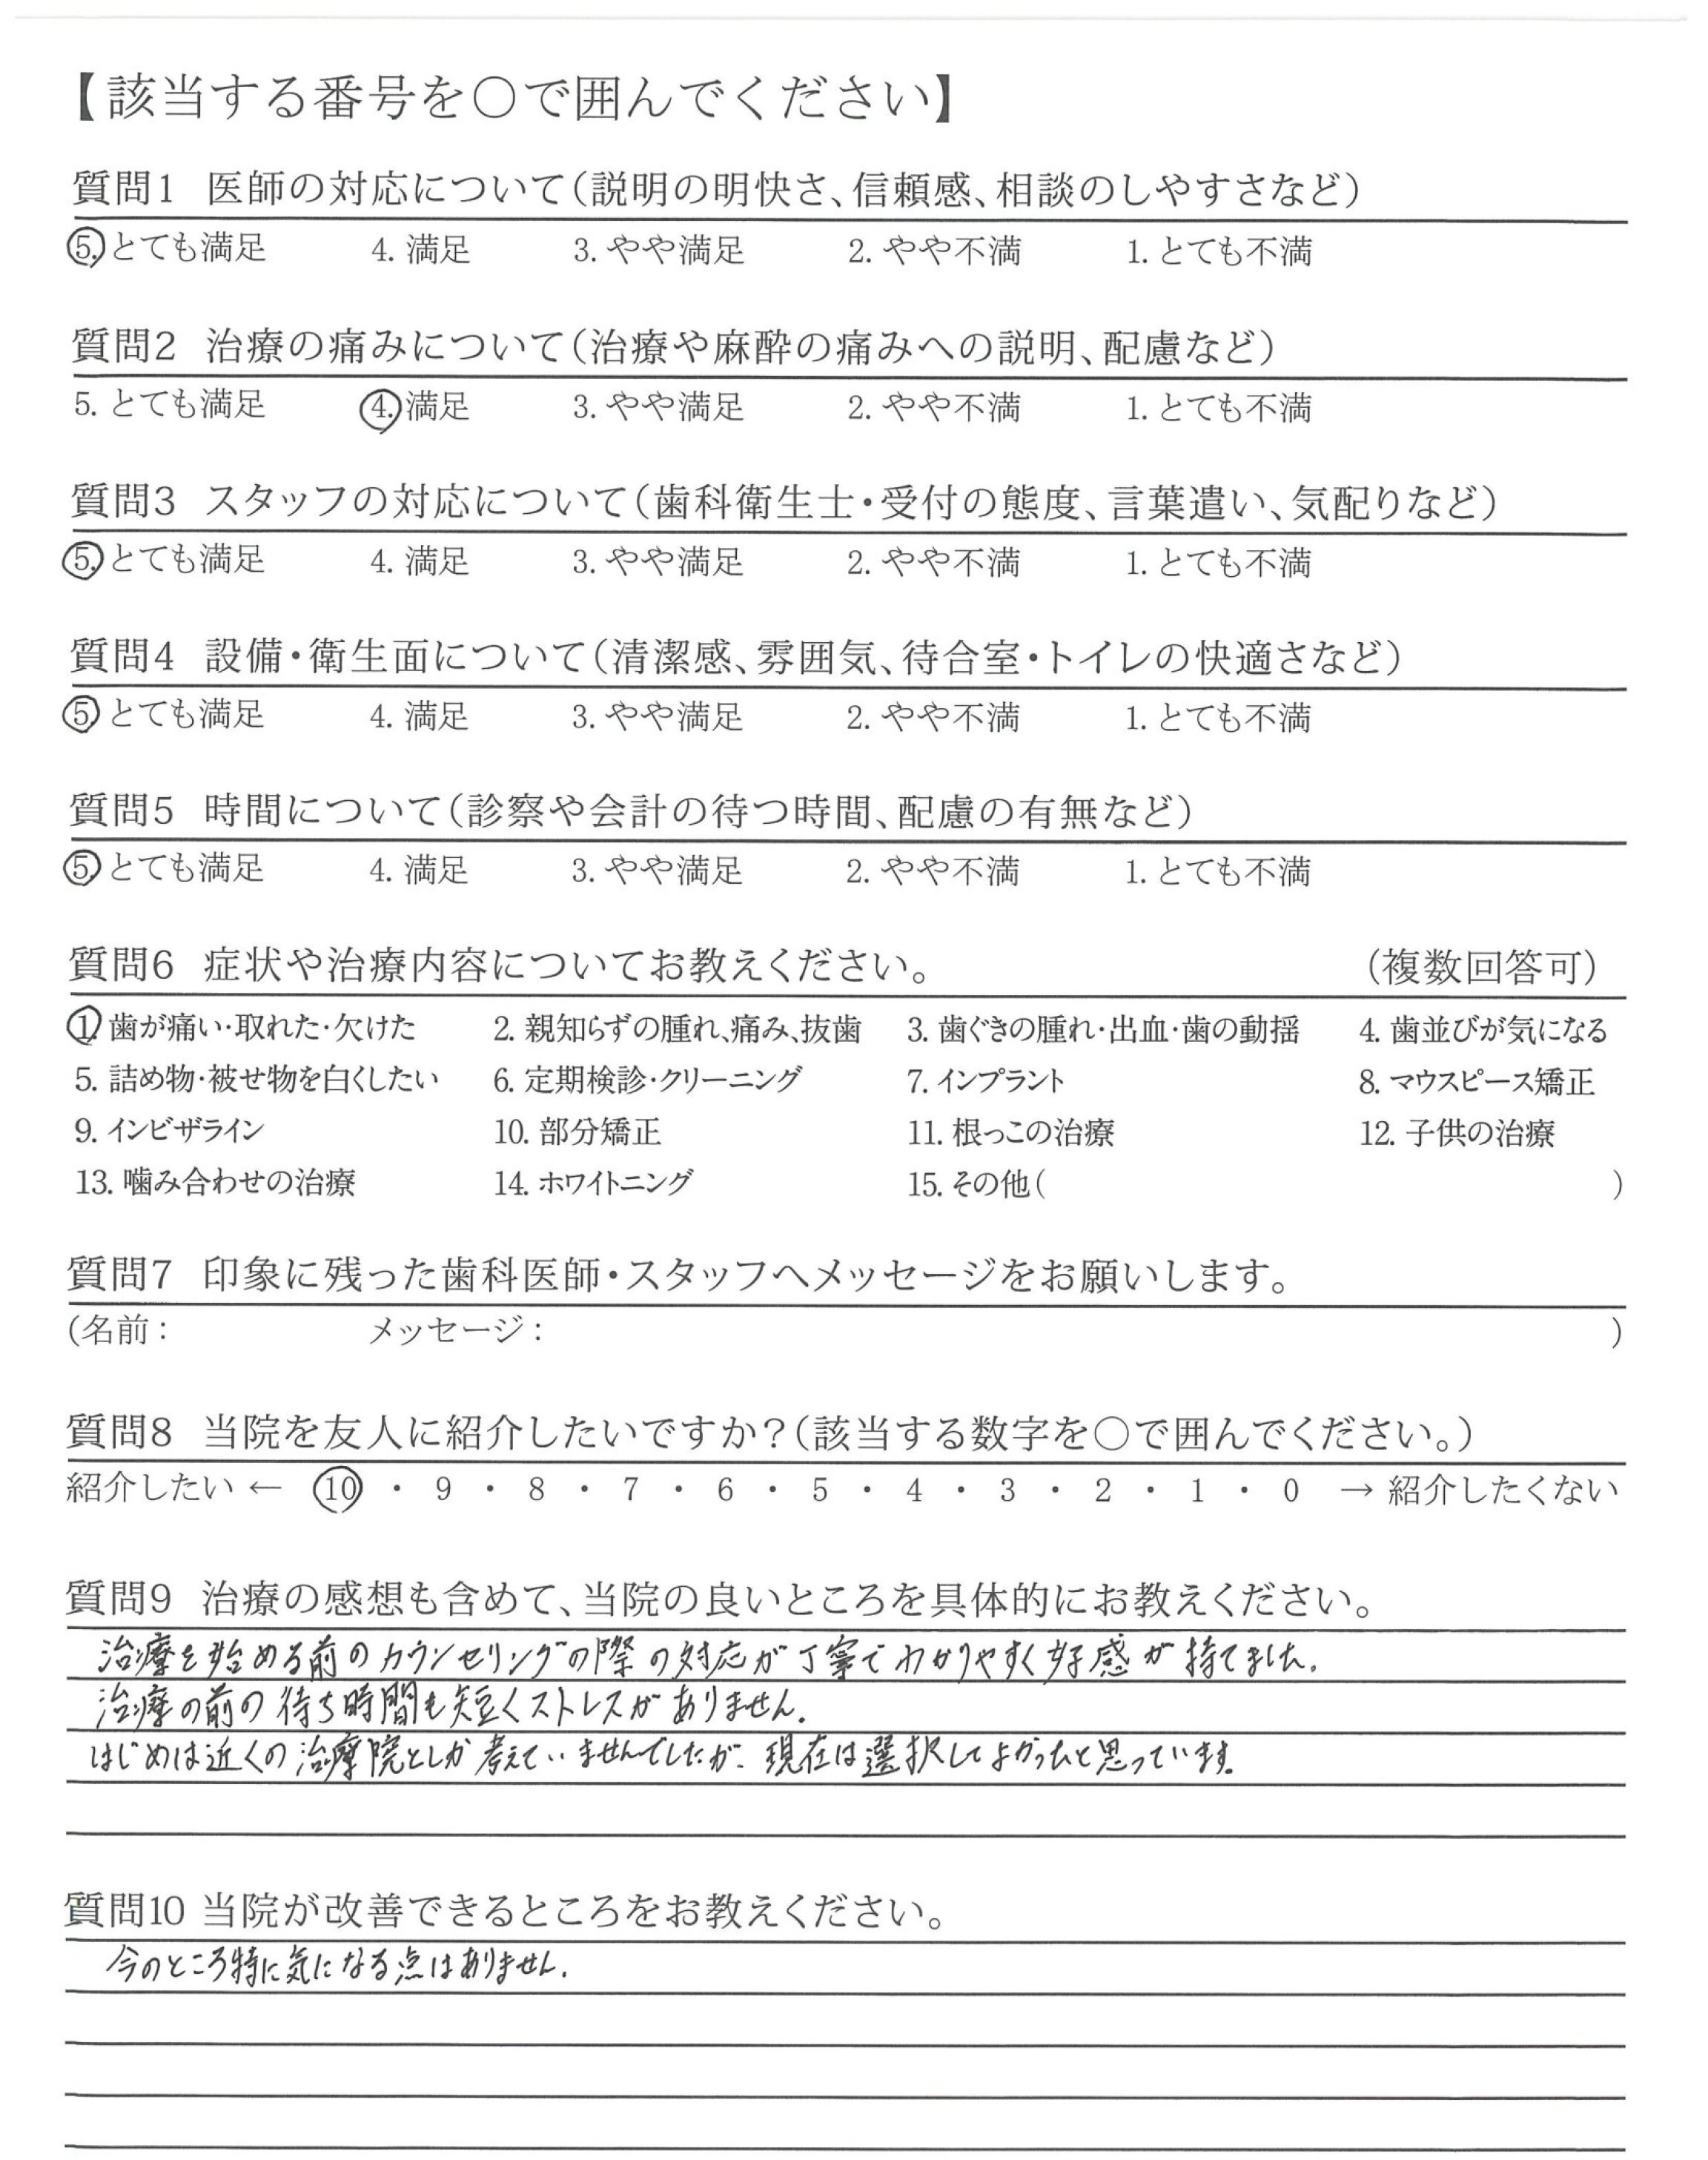 【該当する番号を○で囲んでください】
質問1 医師の対応について(説明の明快さ、信頼感、相談のしやすさなど)
5. とても満足 4. 満足 3. やや満足 2. やや不満 1. とても不満
質問2 治療の痛みについて(治療や麻酔の痛みへの説明、配慮など)
5. とても満足 4. 満足 3. やや満足 2. やや不満 1. とても不満
質問3 スタッフの対応について(歯科衛生士・受付の態度、言葉遣い、気配りなど)
5. とても満足 4. 満足 3. やや満足 2. やや不満 1. とても不満
質問4 設備・衛生面について(清潔感、雰囲気、待合室・トイレの快適さなど)
5. とても満足 4. 満足 3. やや満足 2. やや不満 1. とても不満
質問5 時間について(診察や会計の待つ時間、配慮の有無など)
5. とても満足 4. 満足 3. やや満足 2. やや不満 1. とても不満
質問6 症状や治療内容についてお教えください。 (複数回答可)
1. 歯が痛い・取れた・欠けた 2. 親知らずの腫れ、痛み、抜歯 3. 歯ぐきの腫れ・出血・歯の動揺 4. 歯並びが気になる
5. 詰め物・被せ物を白くしたい 6. 定期検診・クリーニング 7. インプラント 8. マウスピース矯正
9. インビザライン 10. 部分矯正 11. 根っこの治療 12. 子供の治療
13. 噛み合わせの治療 14. ホワイトニング 15. その他( )
質問7 印象に残った歯科医師・スタッフへメッセージをお願いします。
(名前: メッセージ: )
質問8 当院を友人に紹介したいですか?(該当する数字を○で囲んでください。)
紹介したい ← 10 ・ 9 ・ 8 ・ 7 ・ 6 ・ 5 ・ 4 ・ 3 ・ 2 ・ 1 ・ 0 → 紹介したくない
質問9 治療の感想も含めて、当院の良いところを具体的にお教えください。
治療を始める前のカウンセリングの際の対応が丁寧でわかりやすく好感が持てました。
治療の前の待ち時間も短くストレスがありません。
はじめは近くの治療院としか考えていませんでしたが、現在は選択してよかったと思っています。
質問10 当院が改善できるところをお教えください。
今のところ特に気になる点はありません。